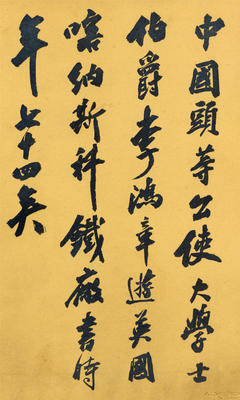 中國頭等公使大學士
伯爵李鴻章遊英國
喀納斯科鐵廠書時
年七十四矣